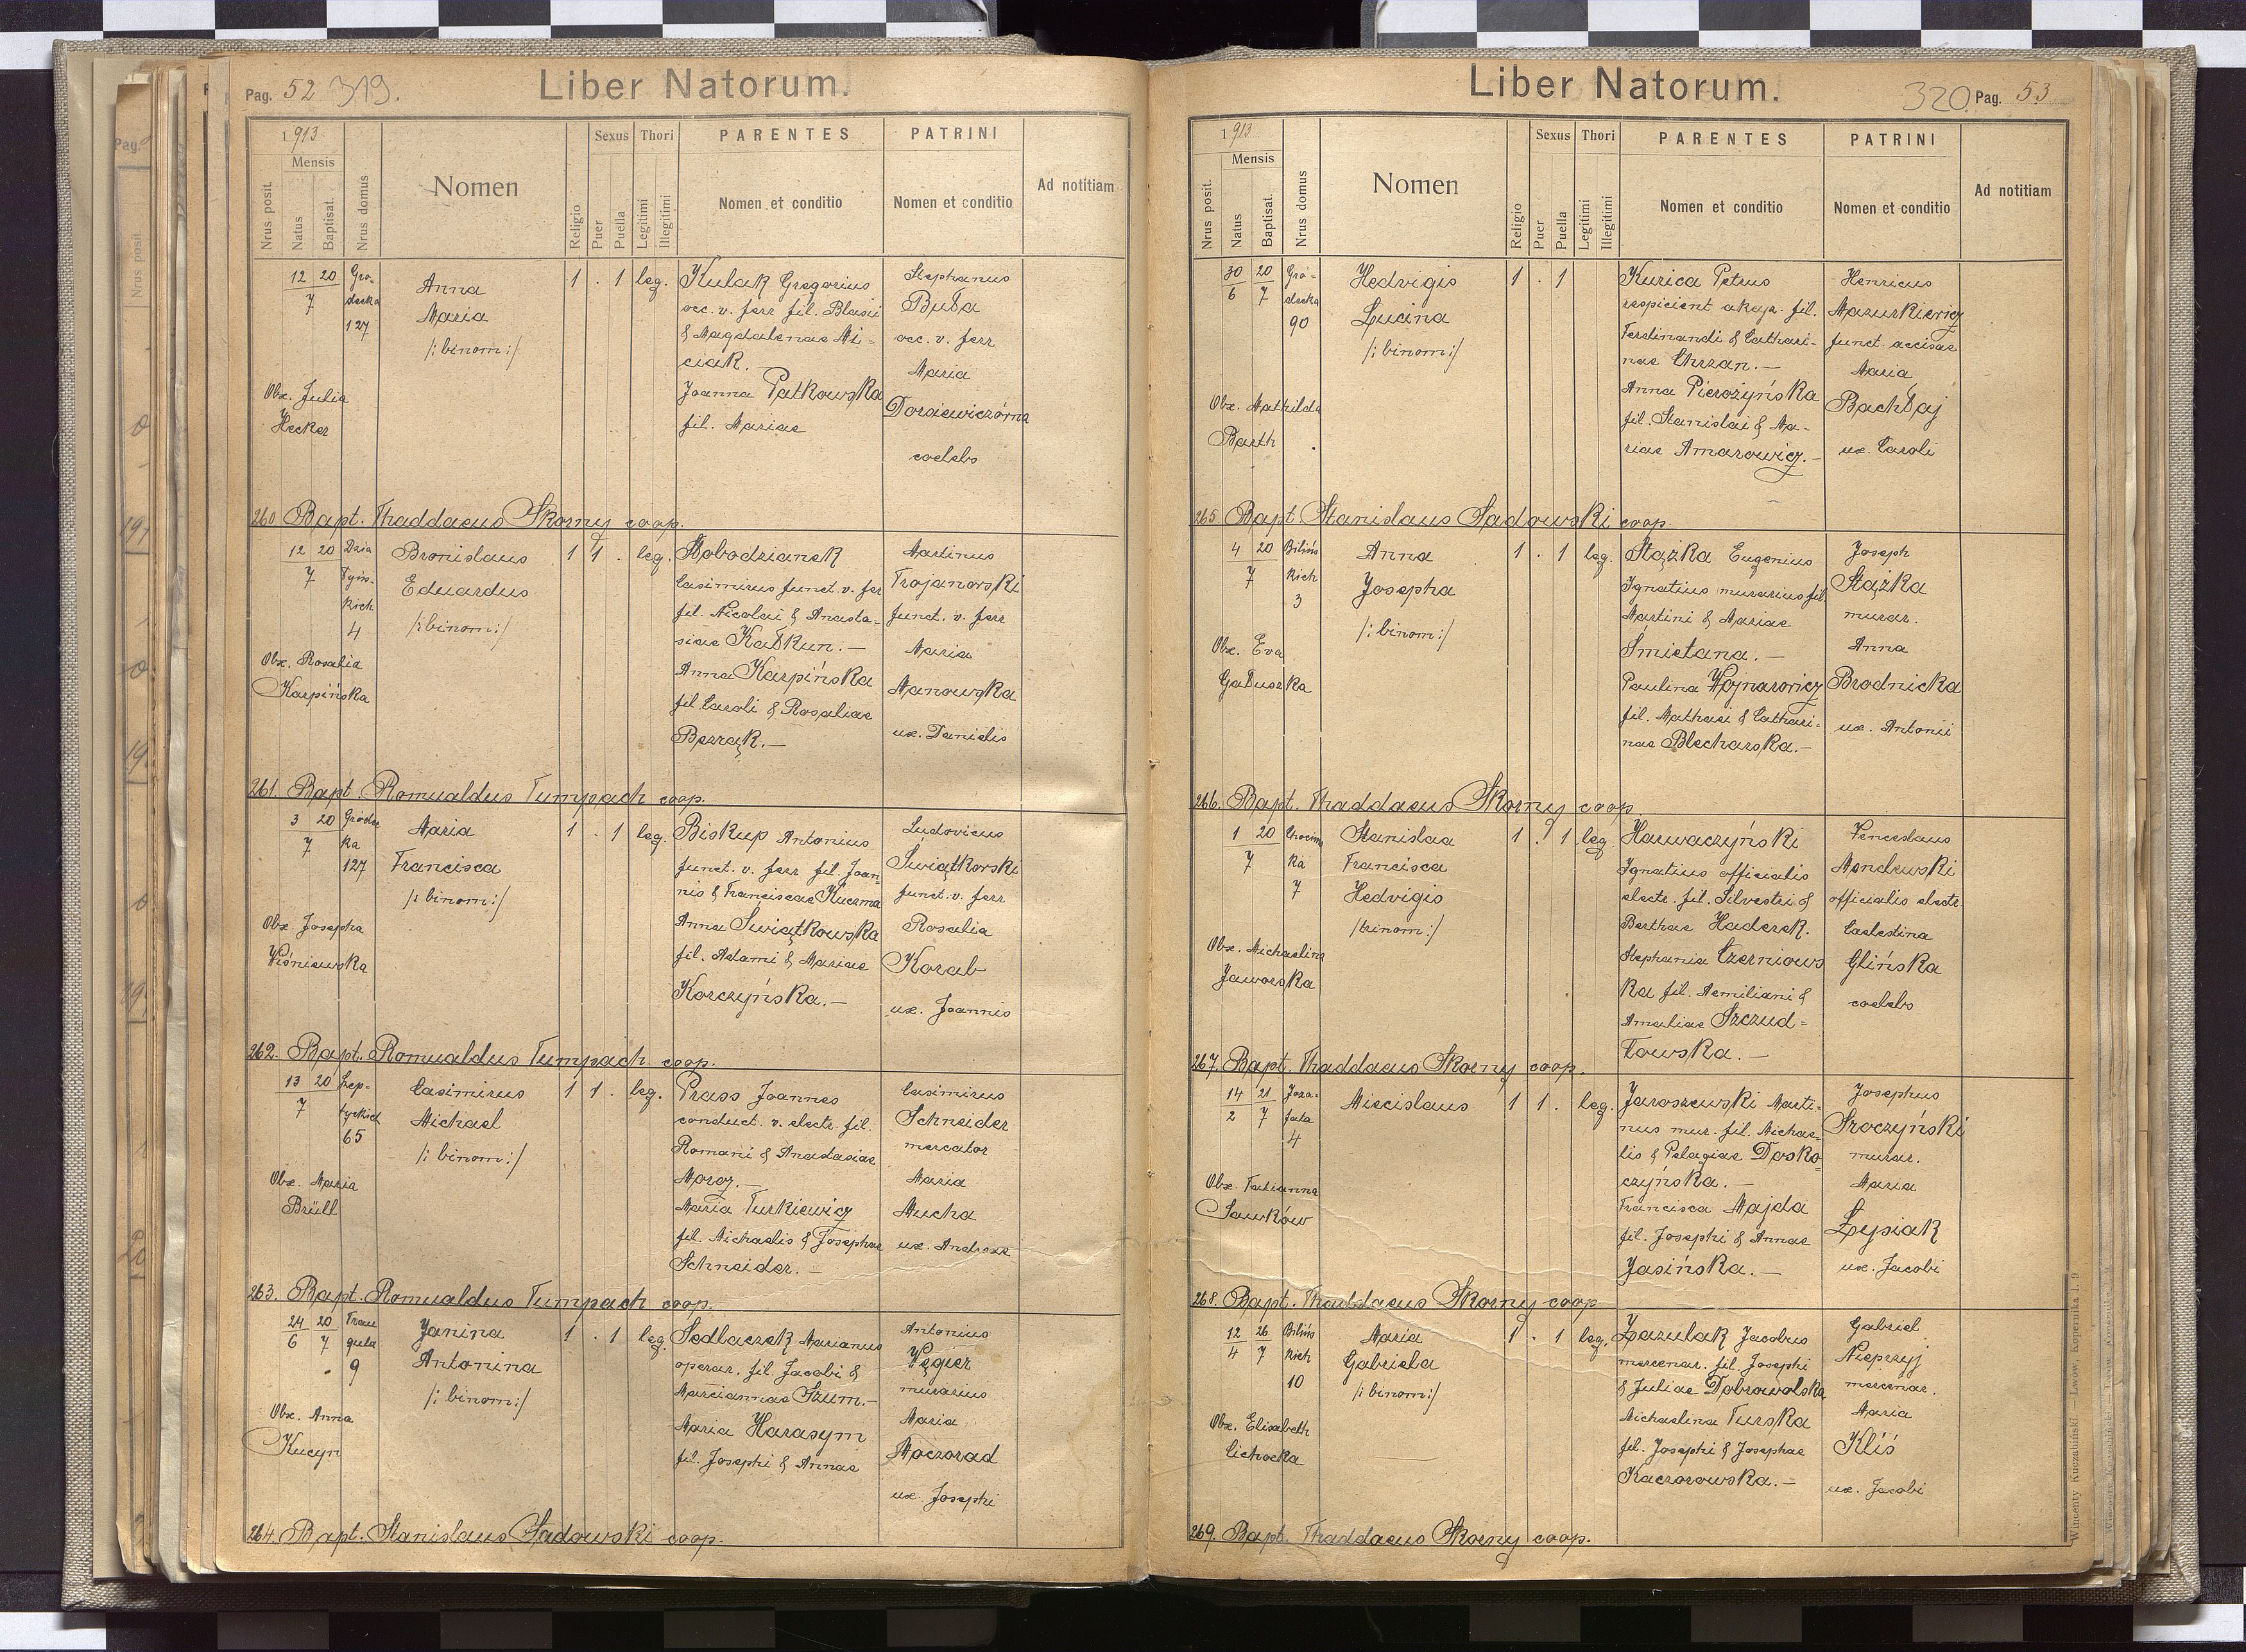 Pag. 52 319.
Liber Natorum.
1913
Nrus posit.
Mensis
Natus
Baptisat.
Nrus domus
Nomen
Religio
Sexus
Puer
Puella
Thori
Legitimi
Illegitimi
PARENTES
Nomen et conditio
PATRINI
Nomen et conditio
Ad notitiam
12 20
7
Gro-
decka
127
Anna
Maria
/: binom:/
1 . 1 leg.
Kulak Gregorius
occ. v. ferr fil. Blasii
& Magdalenae Mi-
ciak.
Joanna Patkowska
fil. Mariae
Stephanus
Buła
occ. v. ferr
Maria
Dorsiewiczówna
coelebs
Obx. Julia
Hecker
260 Bapt. Thaddaeus Skorny coop.
12 20
7
Dzia
łyńs-
kich
4
Bronislaus
Eduardus
/: binom:/
1 1 . leg.
Słobodzianek
Casimirus funct. v. ferr
fil. Nicolai & Anasta-
siae Kałkun.-
Anna Karpińska
fil. Caroli & Rosaliae
Bezrąk.-
Martinus
Trojanowski
funct. v. ferr
Maria
Manowska
ux. Danielis
Obx. Rosalia
Karpińska
261. Bapt. Romualdus Tumpach coop.
3 20
7
Gródec
ka
127
Maria
Francisca
/: binom:/
1 . 1 leg.
Biskup Antonius
funct. v. ferr fil. Joan-
nis & Franciscae Kuczma
Anna Świątkowska
fil. Adami & Mariae
Korczyńska.-
Ludovicus
Świątkowski
funct. v. ferr
Rosalia
Korab
ux. Joannis
Obx. Josepha
Wiśniewska
262. Bapt. Romualdus Tumpach coop.
13 20
7
Szep-
tyckich
65
Casimirus
Michael
/: binom:/
1 1 . leg.
Prass Joannes
conduct. v. electr. fil.
Romani & Anastasiae
Moroz.-
Maria Turkiewicz
fil. Michaelis & Josephae
Schneider.-
Casimirus
Schneider
mercator
Maria
Mucha
ux. Andreae
Obx. Maria
Brüll
263. Bapt. Romualdus Tumpach coop.
24 20
6 7
Frau
guta
9
Janina
Antonina
/: binom:/
1 . 1 leg.
Sedlaczek Marianus
operar. fil. Jacobi &
Marciannae Szum.-
Maria Harasym
fil. Josephi & Annae
Antonius
Węgier
murarius
Maria
Moczorad
ux. Josephi
Obx. Anna
Kucyn
264. Bapt. Stanislaus Sadowski coop.
Liber Natorum.
320. Pag. 53
1913
Nrus posit.
Mensis
Natus
Baptisat.
Nrus domus
Nomen
Religio
Sexus
Puer
Puella
Thori
Legitimi
Illegitimi
PARENTES
Nomen et conditio
PATRINI
Nomen et conditio
Ad notitiam
30 20
6 7
Gro-
decka
90
Hedvigis
Lucina
/: binom:/
1 . 1
Kurica Petrus
respicient akcyz. fil.
Ferdinandi & Cathari-
nae Chrzan.-
Anna Pierożyńska
fil. Stanislai & Ma-
riae Amarowicz.-
Henricus
Mazurkiewicz
funct. accisae
Maria
Bachłaj
ux. Caroli
Obx. Mathilda
Barth
265 Bapt. Stanislaus Sadowski coop.
4 20
7
Bilińs
kich
3
Anna
Josepha
/: binom:/
1 . 1 leg.
Stązka Eugenius
Ignatius murarius fil.
Martini & Mariae
Śmietana.-
Paulina Wojnarowicz
fil. Mathaei & Cathari-
nae Blecharska.-
Joseph
Stązka
murar.
Anna
Brodnicka
ux. Antonii
Obx. Eva
Gałuszka
266. Bapt. Thaddaeus Skorny coop.
1 20
7
Chocim
ka
7
Stanislaa
Francisca
Hedvigis
/trinom:/
1 . 1 leg
Hawaczyński
Ignatius officialis
electr. fil. Silvestri &
Berthae Haderek.
Stephania Czerniows
ka fil. Aemiliani &
Amaliae Szczud-
łowska.-
Venceslaus
Mendewski
officialis electr.
Caelestina
Glińska
coelebs
Obx. Michaelina
Jaworska
267. Bapt. Thaddaeus Skorny coop.
14 21
2 7
Joza-
fata
4
Miecislaus
1 1 . leg.
Jaroszewski Marti-
nus mur. fil. Michae-
lis & Pelagiae Dosko-
czyńska.-
Francisca Majda
fil. Josephi & Annae
Jasińska.-
Josephus
Sroczyński
murar.
Maria
Łysiak
ux. Jacobi
Obx. Tatianna
Sawków
268. Bapt. Thaddaeus Skorny coop
12 26
4 7
Bilińs
kich
10
Maria
Gabriela
/: binom:/
1 . 1 leg.
Łazulak Jacobus
mercenar. fil. Josephi
& Juliae Dobrowolska
Michaelina Turska
fil. Josephi & Josephae
Kaczorowska.-
Gabriel
Nieprzyj
mercenar.
Maria
Kliś
ux. Jacobi
Obx. Elisabeth
Cichocka
269. Bapt. Thaddaeus Skorny coop.
Wincenty Kuczabiński. — Lwów, Kopernika l. 9